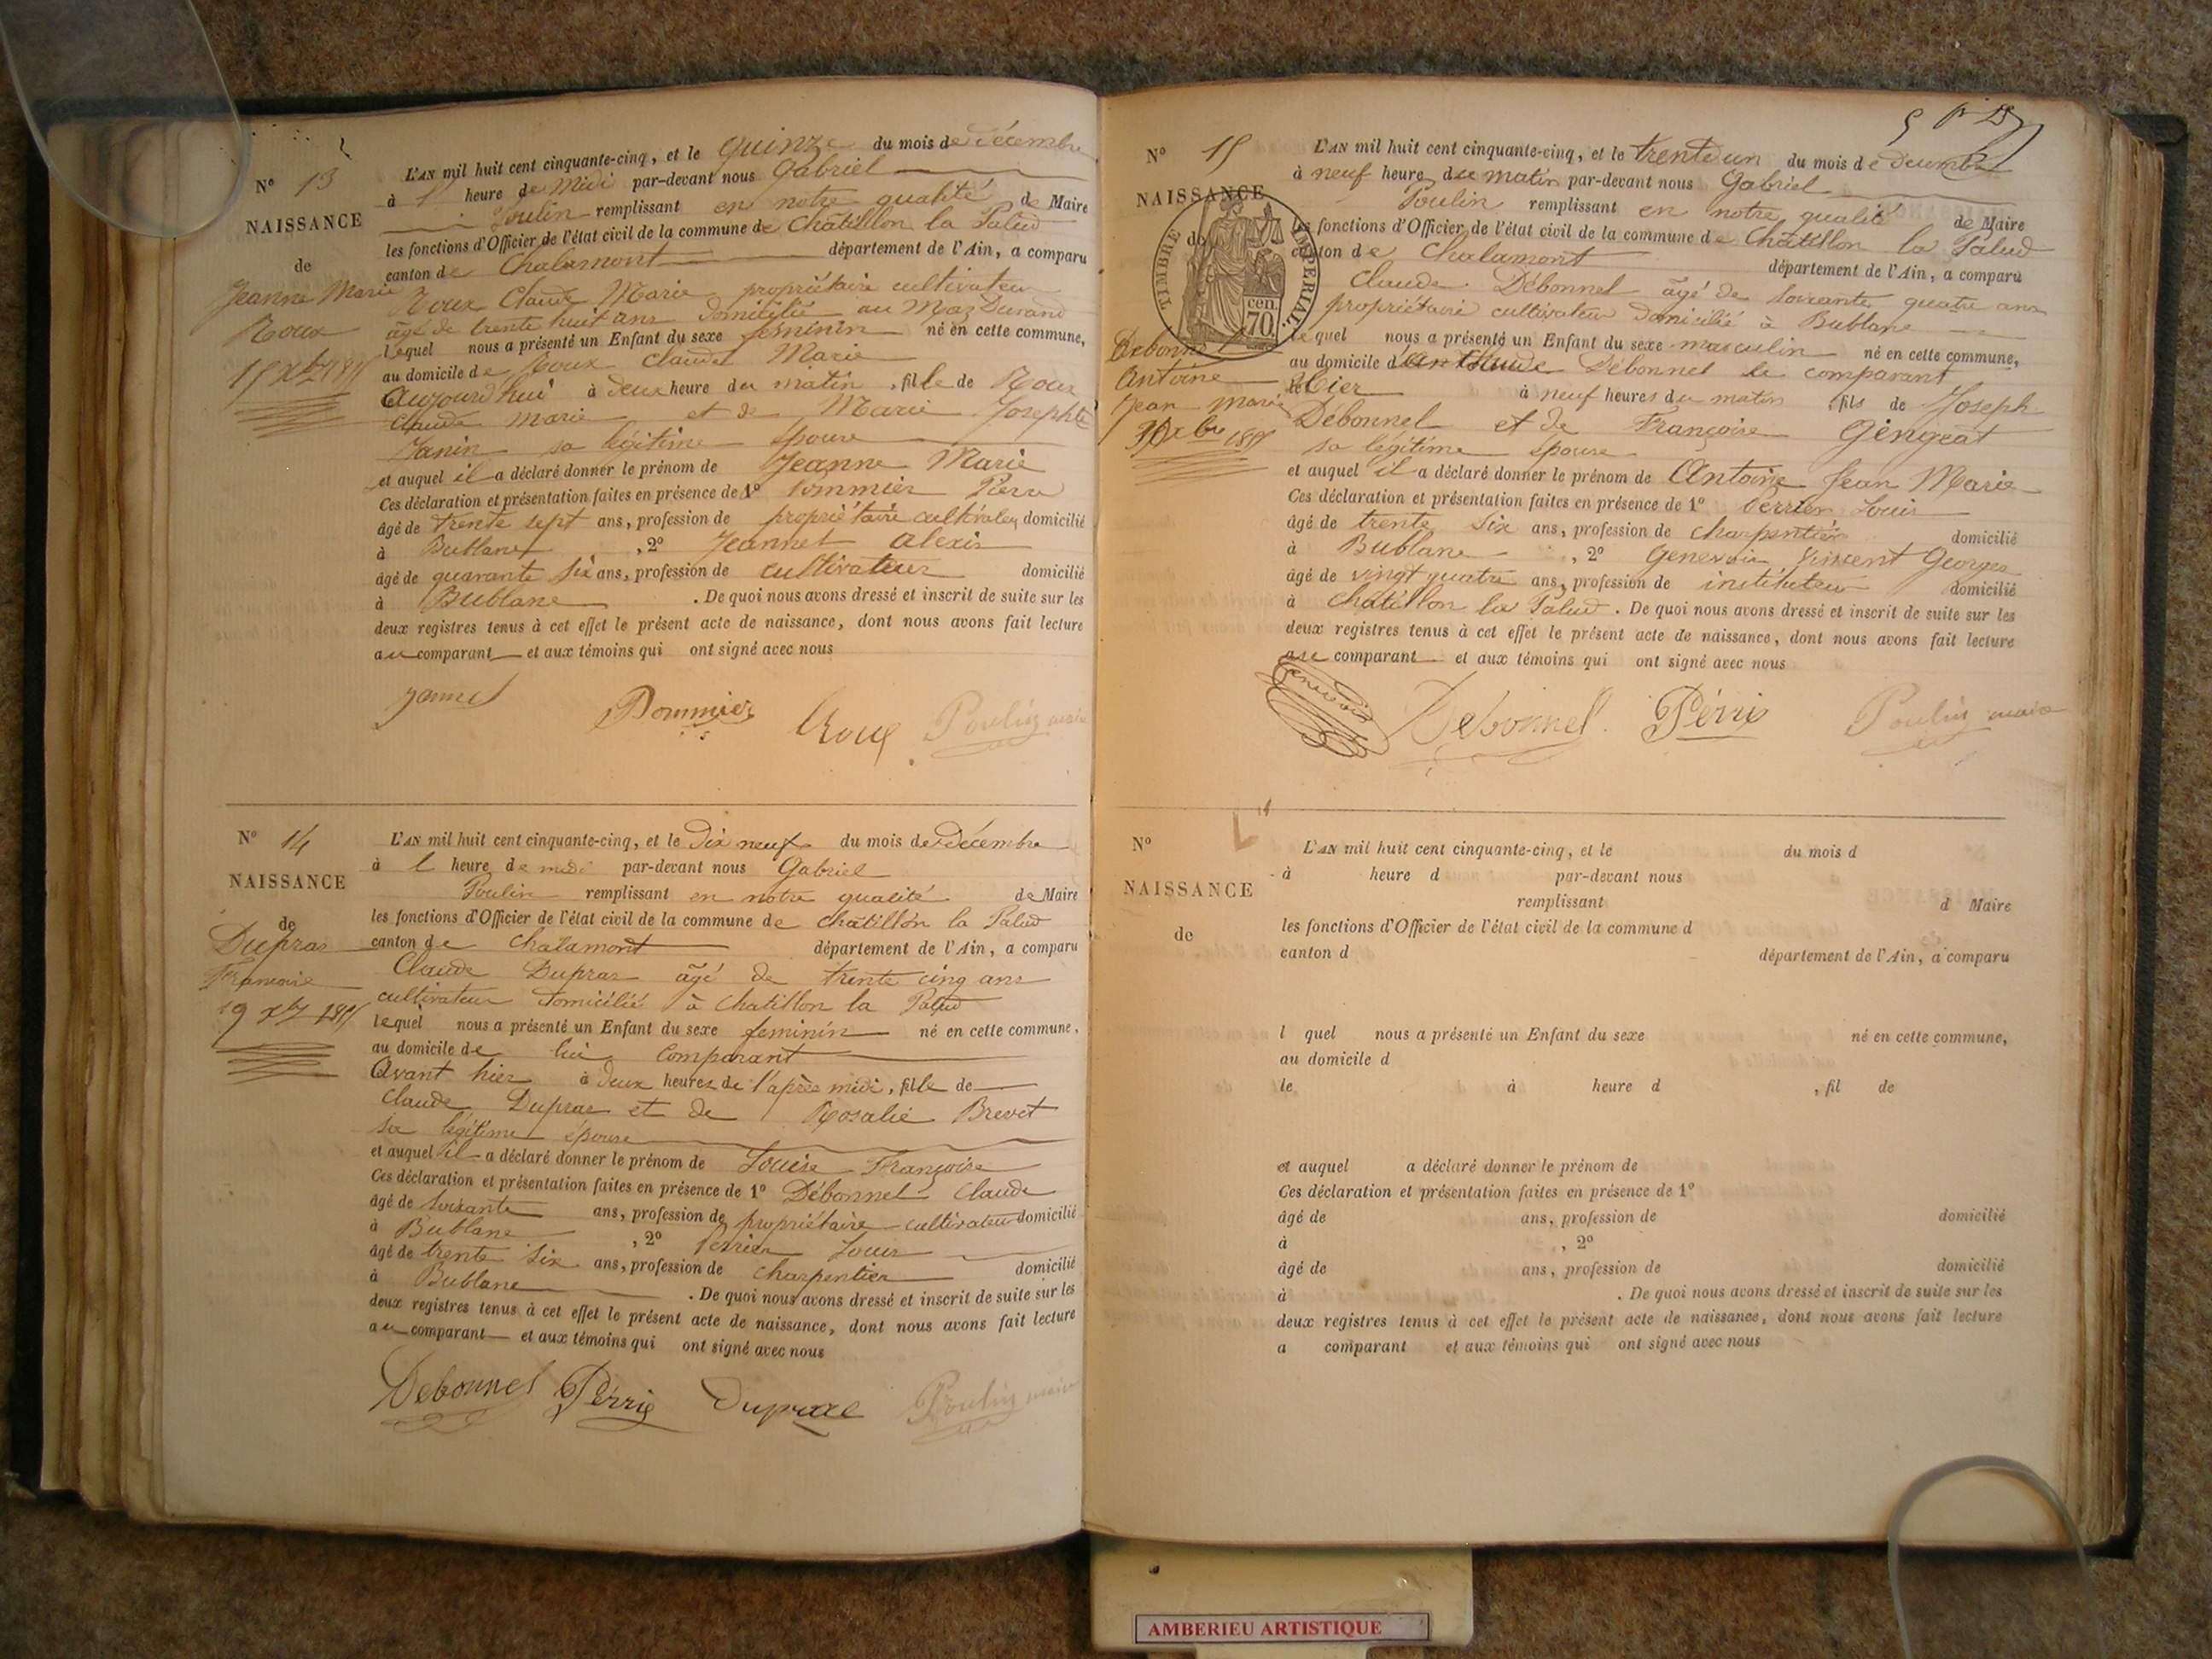 N° 13
NAISSANCE
de
Jeanne Marie
Roux
15 Xbre 1855
L'AN mil huit cent cinquante-cinq, et le quinze du mois de décembre
à 1 heure de midi par-devant nous Gabriel
Poulin remplissant en notre qualité de Maire
les fonctions d'Officier de l'état civil de la commune de Châtillon la Palud
canton de Chalamont département de l'Ain, a comparu
Roux Claude Marie propriétaire cultivateur
âgé de trente huit ans domicilié au Maz Durand
lequel nous a présenté un Enfant du sexe feminin né en cette commune,
au domicile de Roux Claude Marie
Aujourd'hui à deux heure du matin, fille de Roux
Claude Marie et de Marie Josephte
Janin sa légitime épouse
et auquel il a déclaré donner le prénom de Jeanne Marie
Ces déclaration et présentation faites en présence de 1° Pommier Pierre
âgé de trente sept ans, profession de propriétaire cultivateur domicilié
à Bublane, 2° Jeannet alexis
âgé de quarante six ans, profession de cultivateur domicilié
à Bublane. De quoi nous avons dressé et inscrit de suite sur les
deux registres tenus à cet effet le présent acte de naissance, dont nous avons fait lecture
au comparant et aux témoins qui ont signé avec nous
Pommier Roux Poulin maire
N° 14
NAISSANCE
de
Dupras
Francoise
19 Xbre 1855
L'AN mil huit cent cinquante-cinq, et le dix neuf du mois de Décembre
à 1 heure de midi par-devant nous Gabriel
Poulin remplissant en notre qualité de Maire
les fonctions d'Officier de l'état civil de la commune de Châtillon la Palud
canton de Chalamont département de l'Ain, a comparu
Claude Dupras âgé de trente cinq ans
cultivateur domicilié à Chatillon la Palud
lequel nous a présenté un Enfant du sexe feminin né en cette commune,
au domicile de lui comparant
Avant hier à deux heures de l'après midi, fille de
Claude Dupras et de Rosalie Brevet
sa légitime épouse
et auquel il a déclaré donner le prénom de Louise Françoise
Ces déclaration et présentation faites en présence de 1° Débonnel Claude
âgé de soixante ans, profession de propriétaire cultivateur domicilié
à Bublane, 2° Perrier Louis
âgé de trente six ans, profession de charpentier domicilié
à Bublane. De quoi nous avons dressé et inscrit de suite sur les
deux registres tenus à cet effet le présent acte de naissance, dont nous avons fait lecture
au comparant et aux témoins qui ont signé avec nous
Debonnel Périe Duprae Poulin maire
N° 15
NAISSANCE
de
TIMBRE IMPERIAL
cen.
70
Debonnel
Antoine
Jean Marie
31 Xbre 1855
L'AN mil huit cent cinquante-cinq, et le trente un du mois de decembre
à neuf heure du matin par-devant nous Gabriel
Poulin remplissant en notre qualité de Maire
les fonctions d'Officier de l'état civil de la commune de Châtillon la Palud
canton de Chalamont département de l'Ain, a comparu
Claude Débonnel âgé de soixante quatre ans
propriétaire cultivateur domicilié à Bublane
lequel nous a présenté un Enfant du sexe masculin né en cette commune,
au domicile de Claude Débonnel le comparant
hier à neuf heures du matin, fils de Joseph
Débonnel et de Françoise Gengeat
sa légitime épouse
et auquel il a déclaré donner le prénom de Antoine Jean Marie
Ces déclaration et présentation faites en présence de 1° Perrier Louis
âgé de trente six ans, profession de charpentier domicilié
à Bublane, 2° Genevois Vincent Georges
âgé de vingt quatre ans, profession de instituteur domicilié
à Châtillon la Palud. De quoi nous avons dressé et inscrit de suite sur les
deux registres tenus à cet effet le présent acte de naissance, dont nous avons fait lecture
au comparant et aux témoins qui ont signé avec nous
Genevois Debonnel Périe Poulin maire
N°
NAISSANCE
de
L'AN mil huit cent cinquante-cinq, et le du mois d
à heure d par-devant nous
remplissant d Maire
les fonctions d'Officier de l'état civil de la commune d
canton d département de l'Ain, a comparu
l quel nous a présenté un Enfant du sexe né en cette commune,
au domicile d
le à heure d , fil de
et auquel a déclaré donner le prénom de
Ces déclaration et présentation faites en présence de 1°
âgé de ans, profession de domicilié
à , 2°
âgé de ans, profession de domicilié
à . De quoi nous avons dressé et inscrit de suite sur les
deux registres tenus à cet effet le présent acte de naissance, dont nous avons fait lecture
a comparant et aux témoins qui ont signé avec nous
AMBERIEU ARTISTIQUE